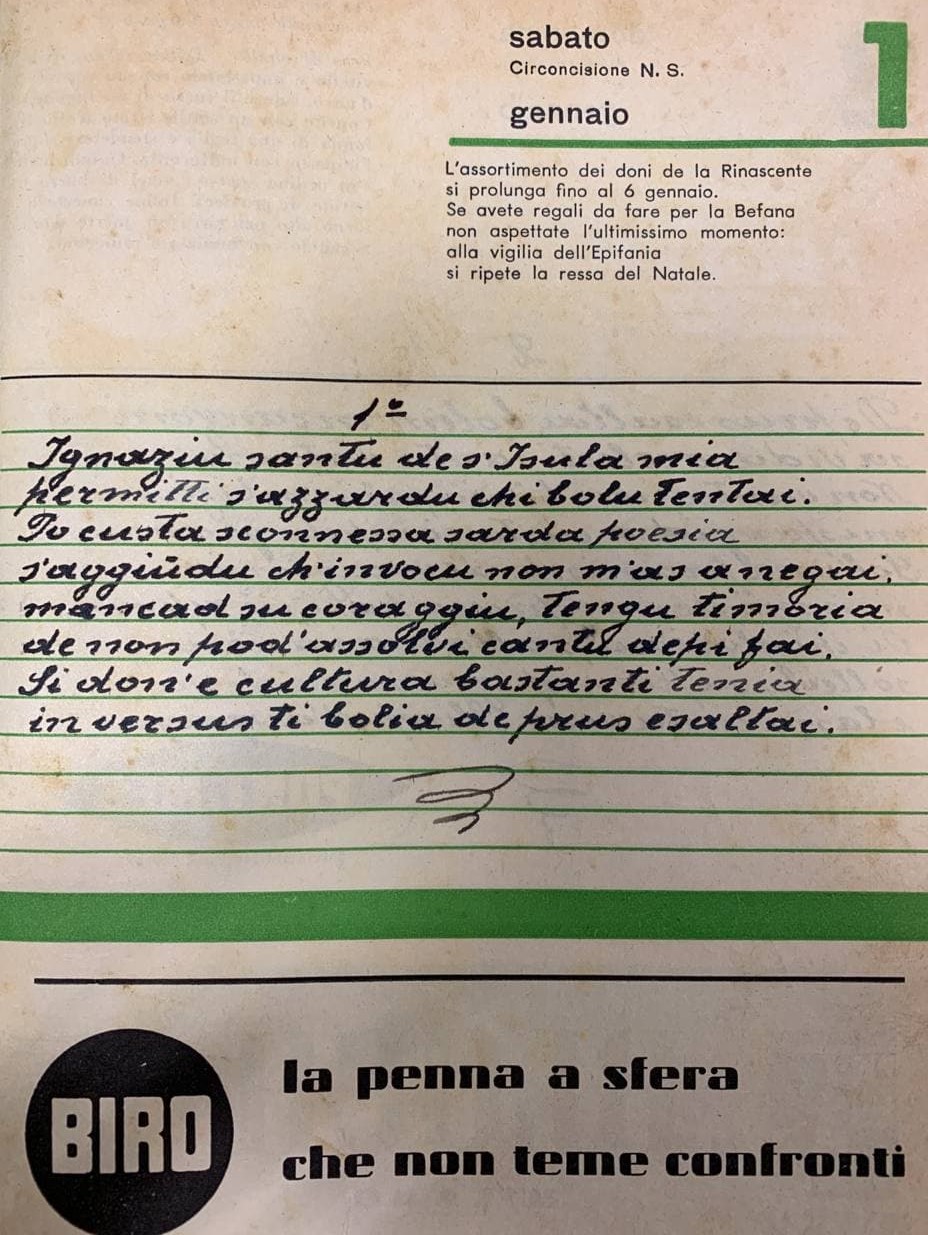 sabato
Circoncisione N. S.
gennaio
1
L'assortimento dei doni de la Rinascente
si prolunga fino al 6 gennaio.
Se avete regali da fare per la Befana
non aspettate l'ultimissimo momento:
alla vigilia dell'Epifania
si ripete la ressa del Natale.
1º
Ignaziu santu de s'Isula mia
permitti s'azzardu chi bolu tentai.
Po custa sconnessa sarda poesia
s'aggiūdu ch'invocu non m'as a negai.
mancad su coraggiu, tengu timoria
de non pod'assolvi cantu depi fai.
Si don'e cultura bastanti tenia
in versus ti bolia de prus esaltai.
BIRO
la penna a sfera
che non teme confronti